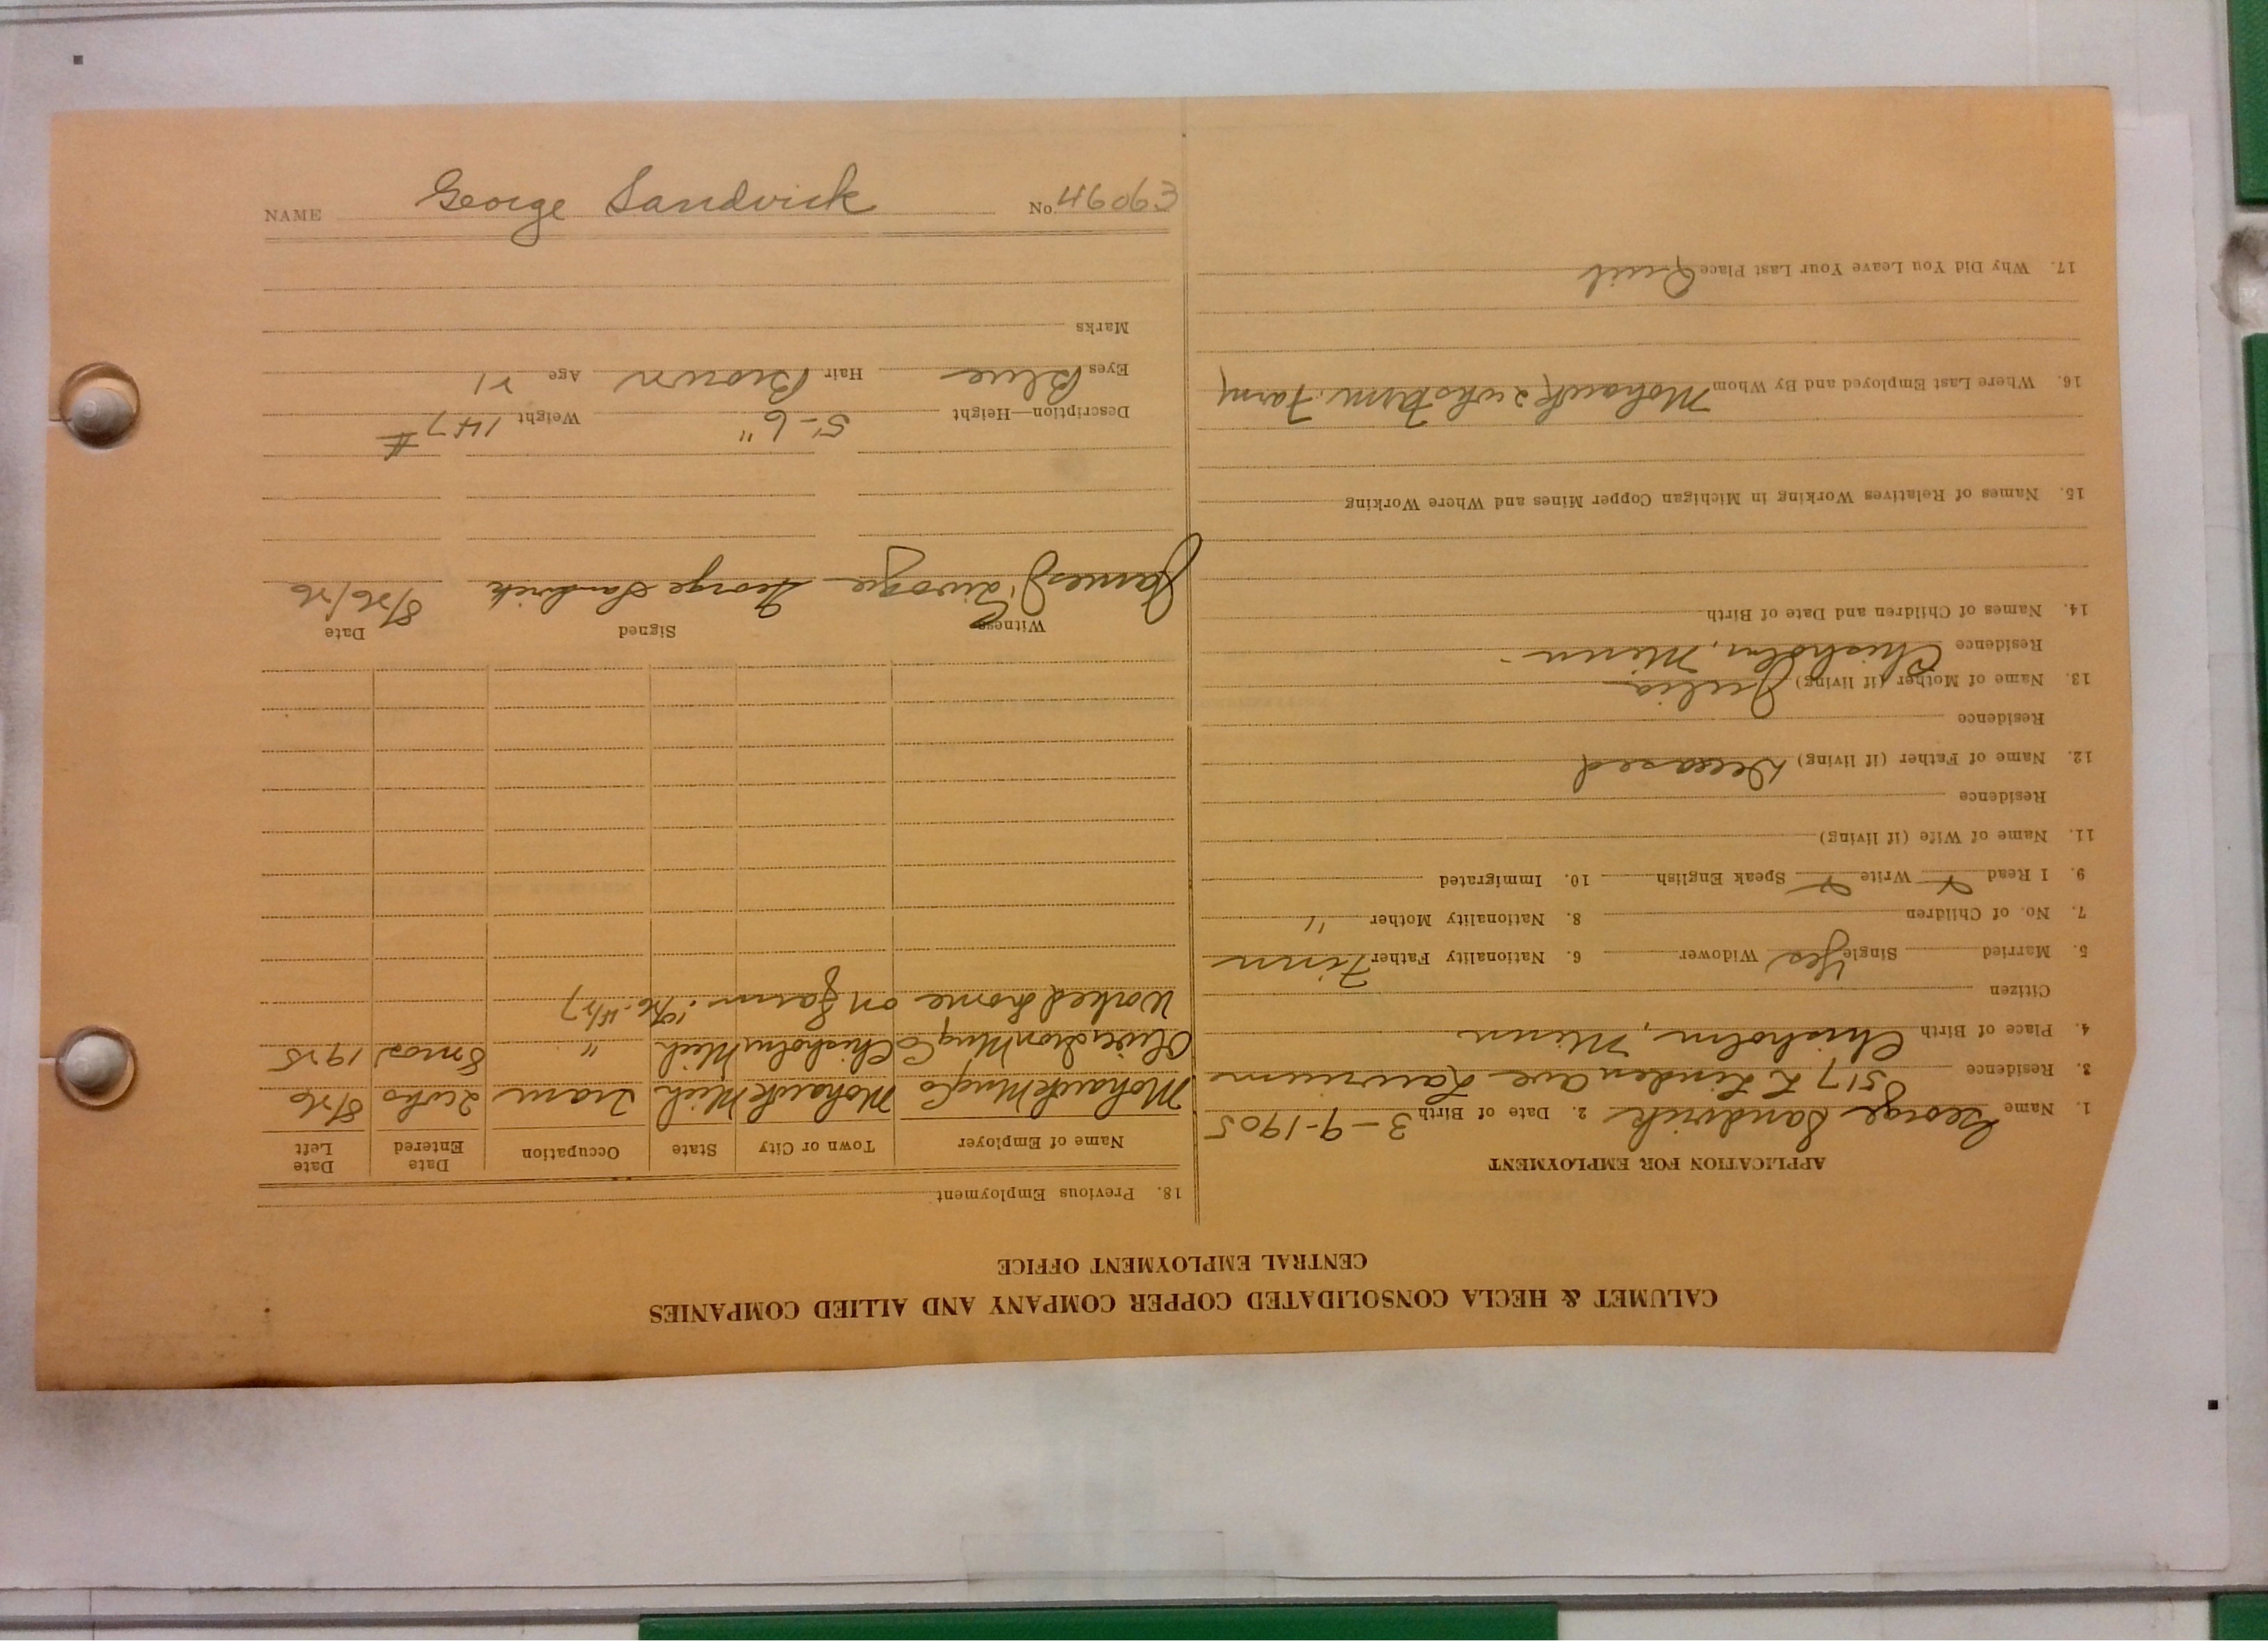 NAME George Sandvick No. 46063
CALUMET & HECLA CONSOLIDATED COPPER COMPANY AND ALLIED COMPANIES
CENTRAL EMPLOYMENT OFFICE
APPLICATION FOR EMPLOYMENT
1. Name George Sandvick 2. Date of Birth 3-9-1905
3. Residence 517 Linden ave Laurium
4. Place of Birth Chisholm, Minn
Citizen
5. Married Single Yes Widower 6. Nationality Father Finn
7. No. of Children 8. Nationality Mother "
9. I Read Write Speak English 10. Immigrated
11. Name of Wife (if living)
Residence
12. Name of Father (if living) Deceased
Residence
13. Name of Mother (if living) Julia
Residence Chisholm, Minn
14. Names of Children and Date of Birth
15. Names of Relatives Working in Michigan Copper Mines and Where Working
16. Where Last Employed and By Whom Mohawk 2 wks Farm
17. Why Did You Leave Your Last Place Quit
18. Previous Employment
Name of Employer Town or City State Occupation Date Entered Date Left
Mohawk Mng Co Mohawk Mich Tram 2 wks 8/26
Mng Co Chisholm Mich " 8 mos 1925
Worked home on farm
Witness Signed Date
James George Sandvick 8/26/26
Description—Height 5-6" Weight 147#
Eyes Blue Hair Brown Age 21
Marks